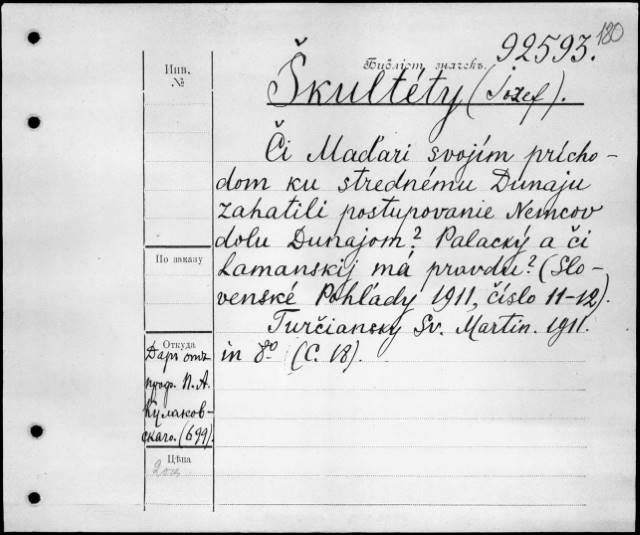 180
92593.
Библіот. значекъ.
Škultéty (Jozef).
Či Maďari svojím prícho-
dom ku strednému Dunaju
zahatili postupovanie Nemcov
dolu Dunajom? Palacký a či
Lamanskij má pravdu? (Slo-
venské Pohľady 1911, číslo 11-12).
Turčiansky Sv. Martin. 1911.
in 8º (C. 18).
Инв.
№
По заказу
Откуда
Даръ отъ
проф. П. А.
Кулаков-
скаго. (699).
Цѣна